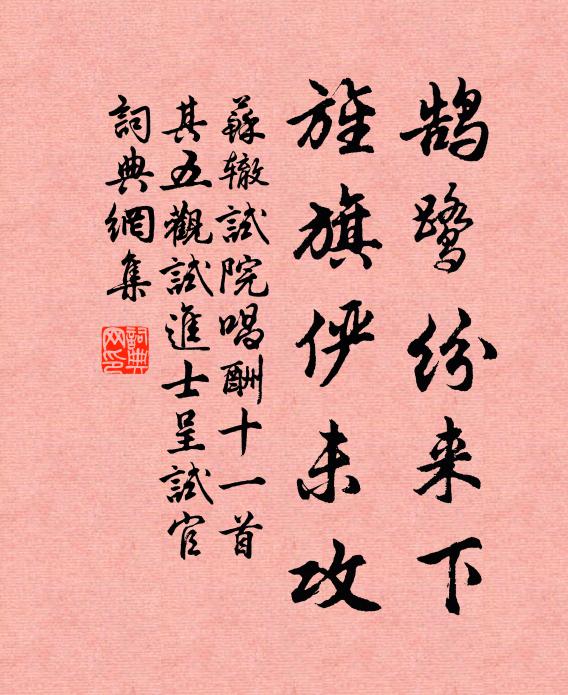 鹄鹭纷来下
旌旗俨未攻
蘇辙試院唱酬十一首
其五觀試進士呈試官
詞典網集
詞典网印